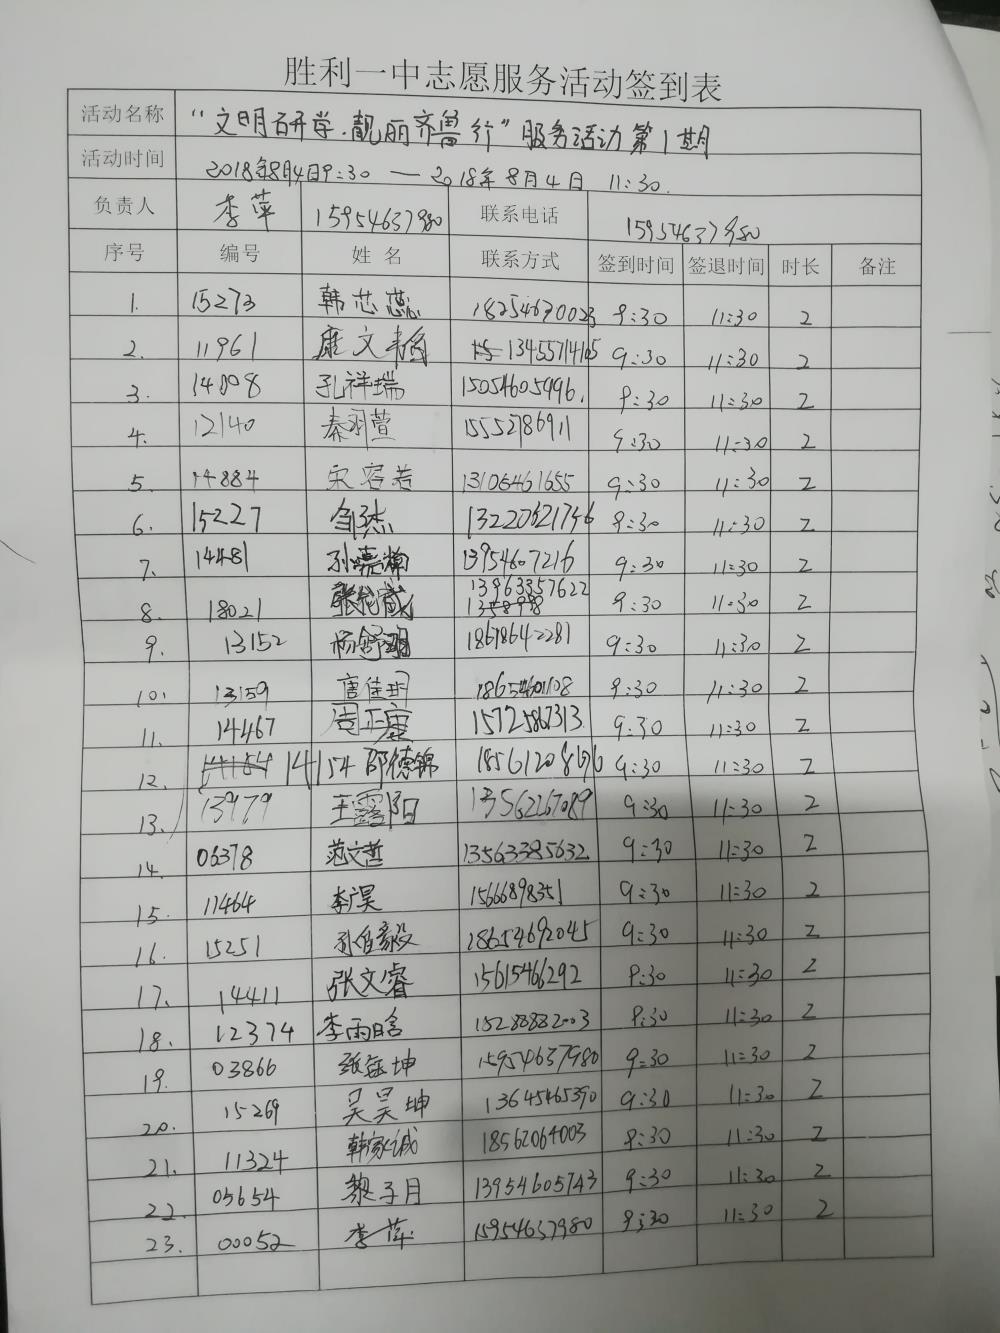 胜利一中志愿服务活动签到表
活动名称 “文明研学·靓丽齐鲁行”服务活动第1期
活动时间 2018年8月4日9:30 — 2018年8月4日 11:30.
负责人 李萍 15954637980 联系电话 15954637980
序号 编号 姓名 联系方式 签到时间 签退时间 时长 备注
1. 15273 韩芯蕊 18254670023 9:30 11:30 2
2. 11961 康文 13455714105 9:30 11:30 2
3. 14008 孔祥瑞 15054605996. 9:30 11:30 2
4. 12140 秦羽萱 15552786911 9:30 11:30 2
5. 14884 宋容若 13105461655 9:30 11:30 2
6. 15227 13220621746 9:30 11:30 2
7. 14481 孙嘉翰 13954607216 9:30 11:30 2
8. 18021 13963357622 9:30 11:30 2
9. 13152 杨舒玥 18678642281 9:30 11:30 2
10. 13159 唐佳玥 18654601108 9:30 11:30 2
11. 14467 周正康 15725867313 9:30 11:30 2
12. 14154 14154 邵德锦 18561208696 9:30 11:30 2
13. 13979 王露阳 13562267089 9:30 11:30 2
14. 06378 范文哲 13563385632 9:30 11:30 2
15. 11464 李昊 15666898351 9:30 11:30 2
16. 15251 孙伯毅 18654692045 9:30 11:30 2
17. 14411 张文睿 15615466292 9:30 11:30 2
18. 12374 李雨晗 15288882003 9:30 11:30 2
19. 03866 张钰坤 15954637980 9:30 11:30 2
20. 15269 吴昊坤 13645465390 9:30 11:30 2
21. 11324 韩家诚 18562064003 9:30 11:30 2
22. 05654 黎子月 13954605743 9:30 11:30 2
23. 00052 李萍 15954637980 9:30 11:30 2